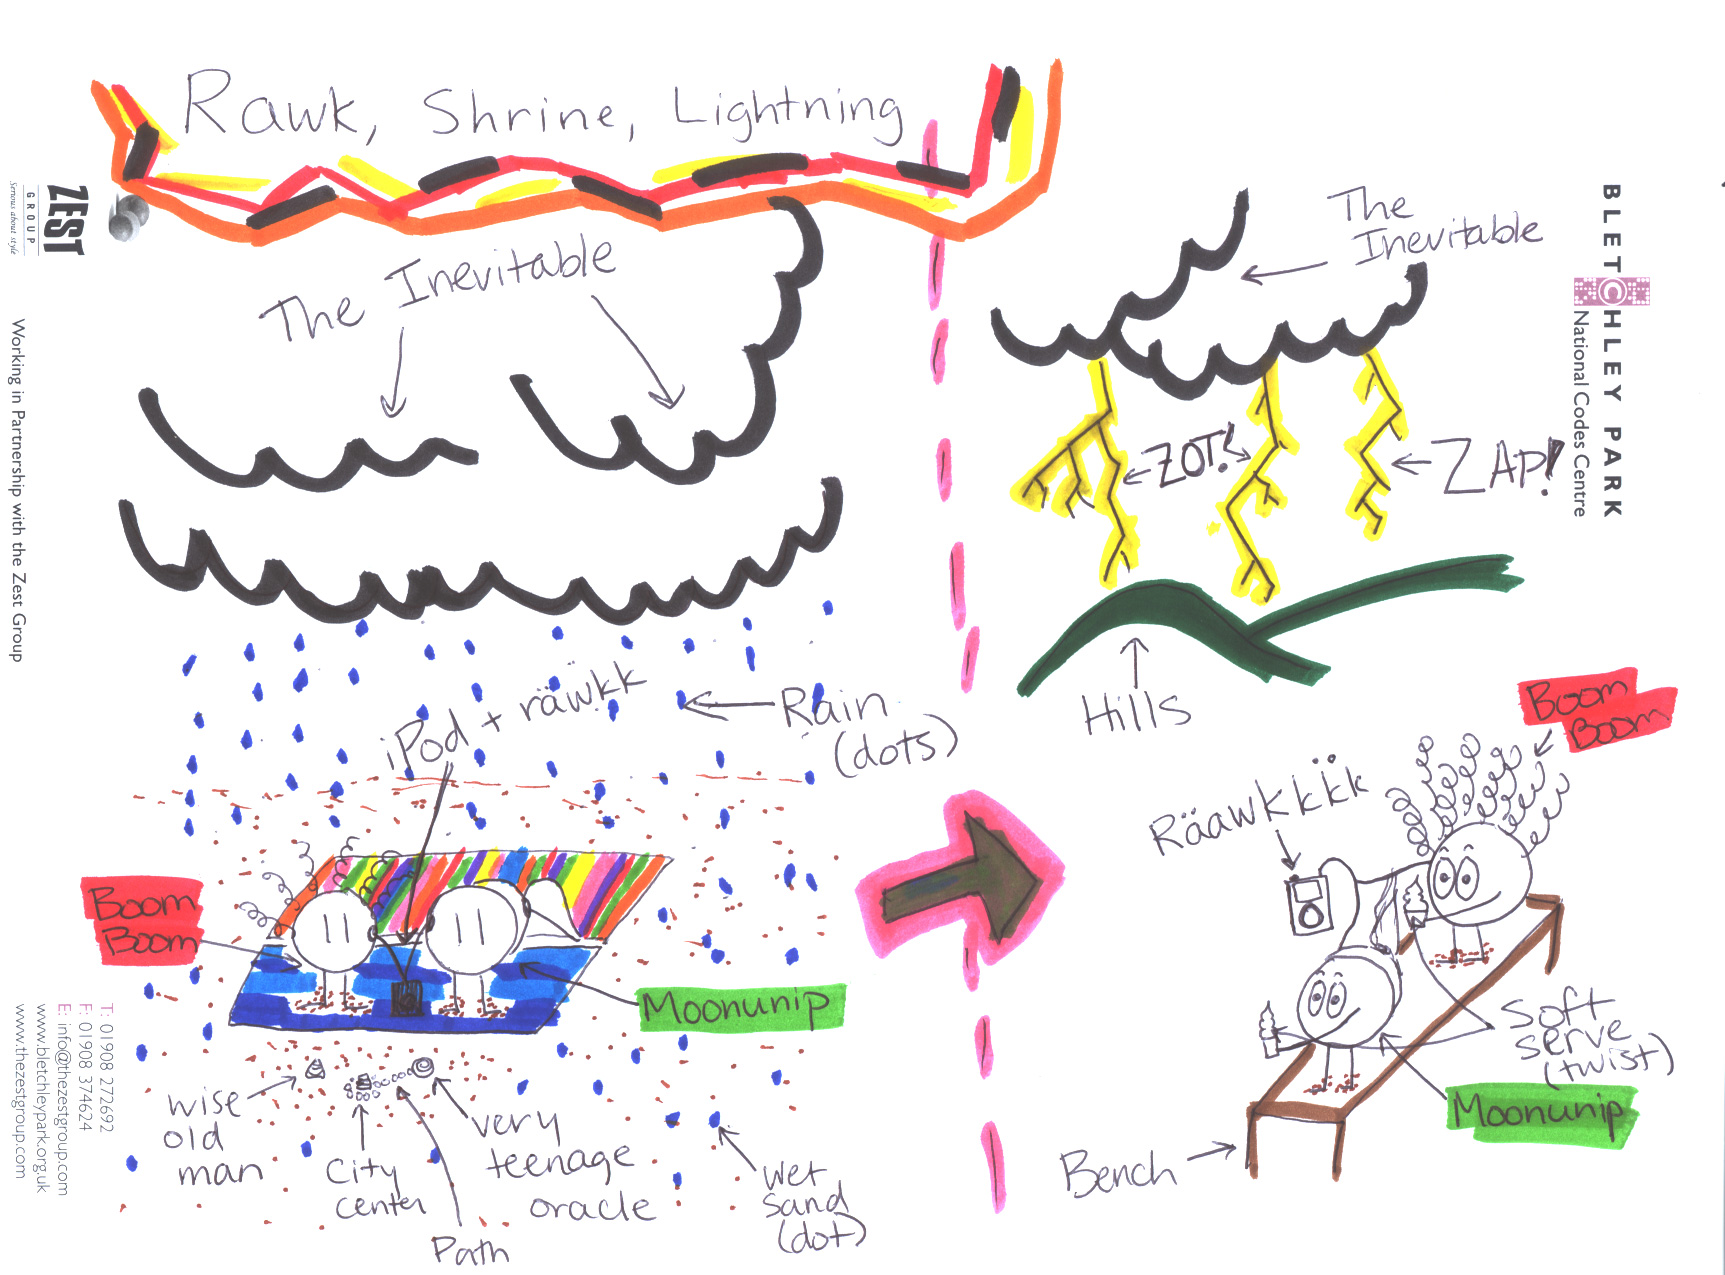 Rawk, Shrine, Lightning
The Inevitable
iPod + räwkk
Rain
(dots)
Boom
Boom
Moonunip
wise
old
man
City
center
Path
very
teenage
oracle
wet
sand
(dot)
The
Inevitable
ZOT!
ZAP!
Hills
Boom
Boom
Räawkkkk̈
Soft
serve
(twist)
Moonunip
Bench
ZEST
GROUP
Serious about style
Working in Partnership with the Zest Group
T: 01908 272692
F: 01908 374624
E: info@thezestgroup.com
www.bletchleypark.org.uk
www.thezestgroup.com
BLETCHLEY PARK
National Codes Centre